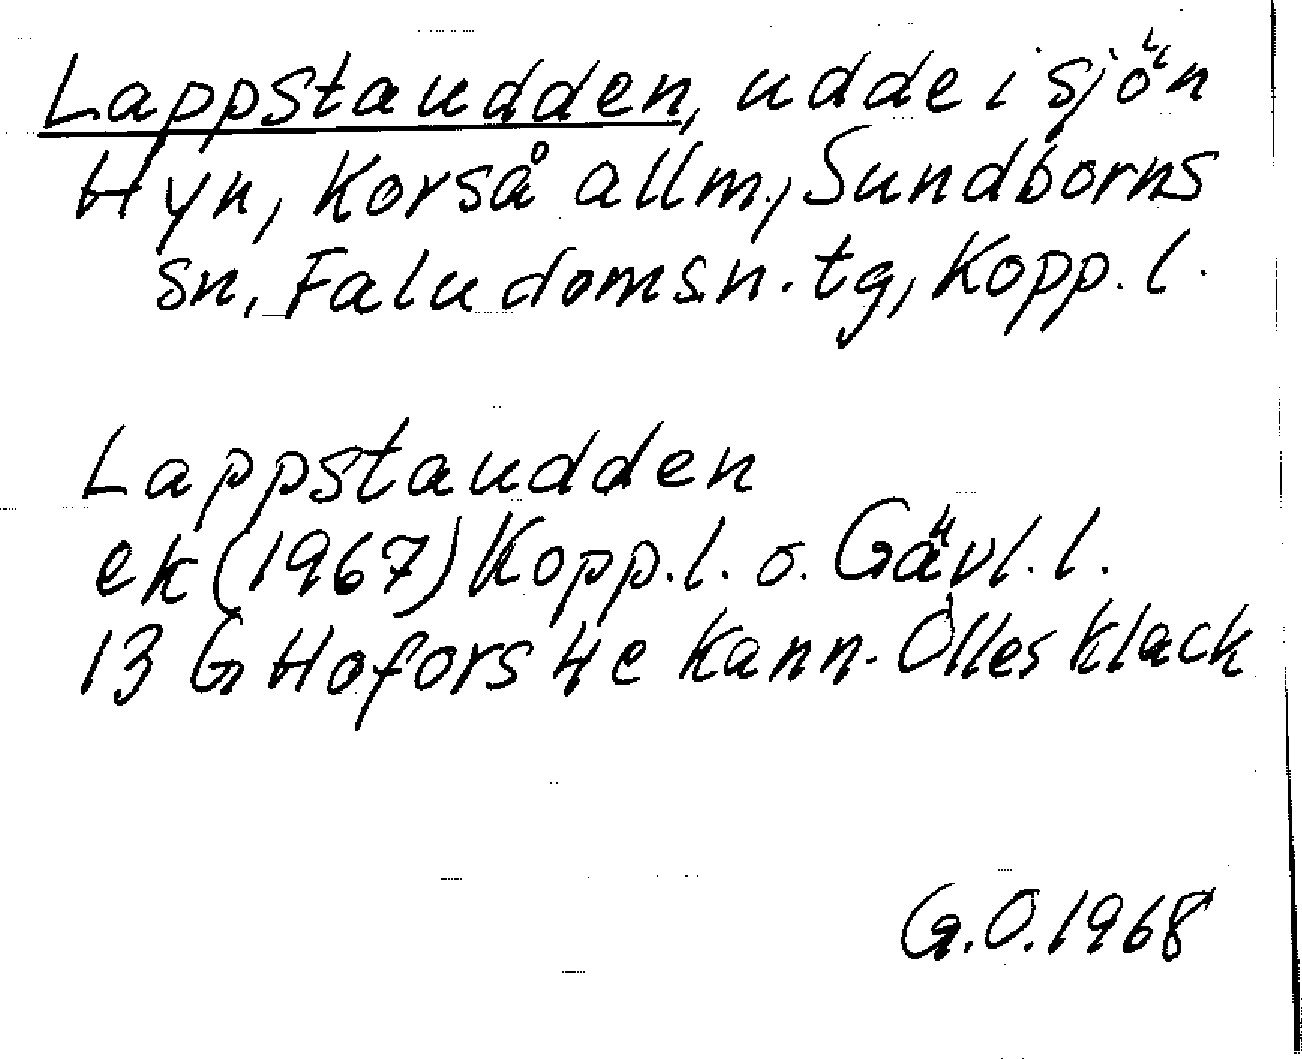 Lappstaudden, udde i sjön
Hyn, Korså allm., Sundborns
sn, Falu domsn. tg, Kopp. l.
Lappstaudden
ek (1967) Kopp. l. o. Gävl. l.
13 G Hofors 4 e Kann. Olles klack
G.O. 1968